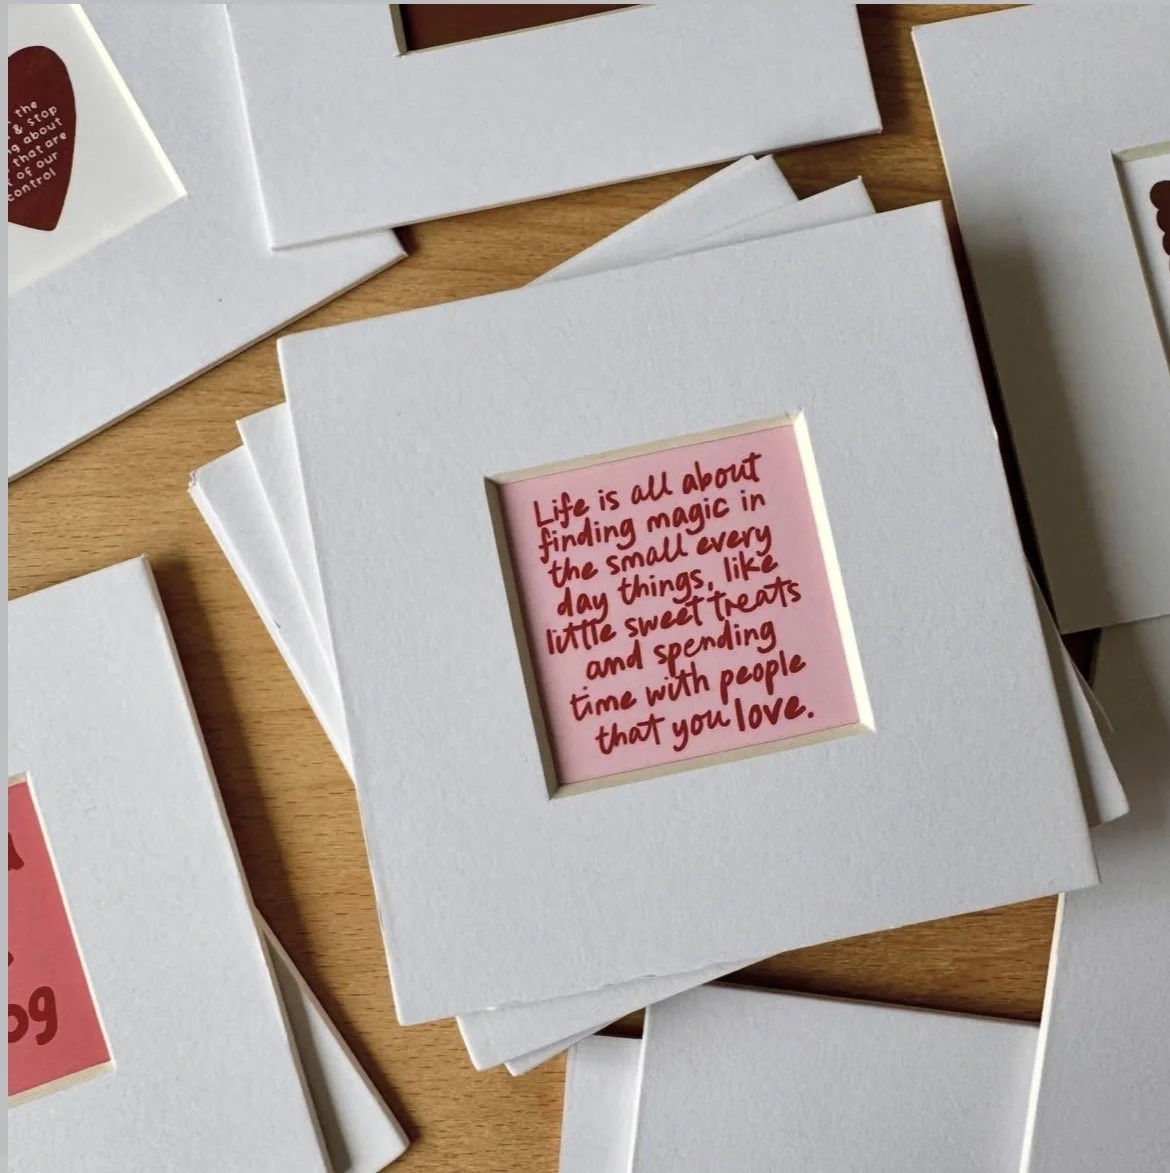 the
& stop
about
that are
of our
control
Life is all about
finding magic in
the small every
day things, like
little sweet treats
and spending
time with people
that you love.